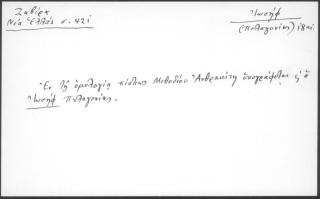 Ζαβίρα
Νέα Ἑλλάς σ. 421
Ἰωσήφ
(Πελαγονίας)
Ἐν τῇ ὁμολογίᾳ πίστεως Μεθοδίου Ἀνθρακίτη ὑπογράφεται ὁ
Ἰωσήφ Πελαγονίας.